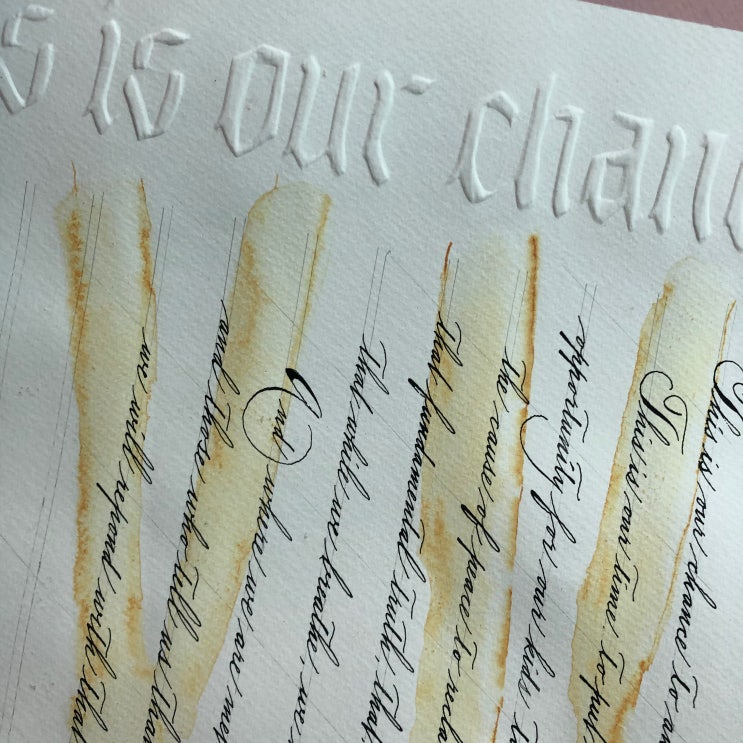 s is our chan
This is our chance to a
This is our time to put
opportunity for our kids t
the cause of peace to recla
that fundamental truth, that
that while we breathe, we
And where we are met
and those who tell us that
we will respond with that